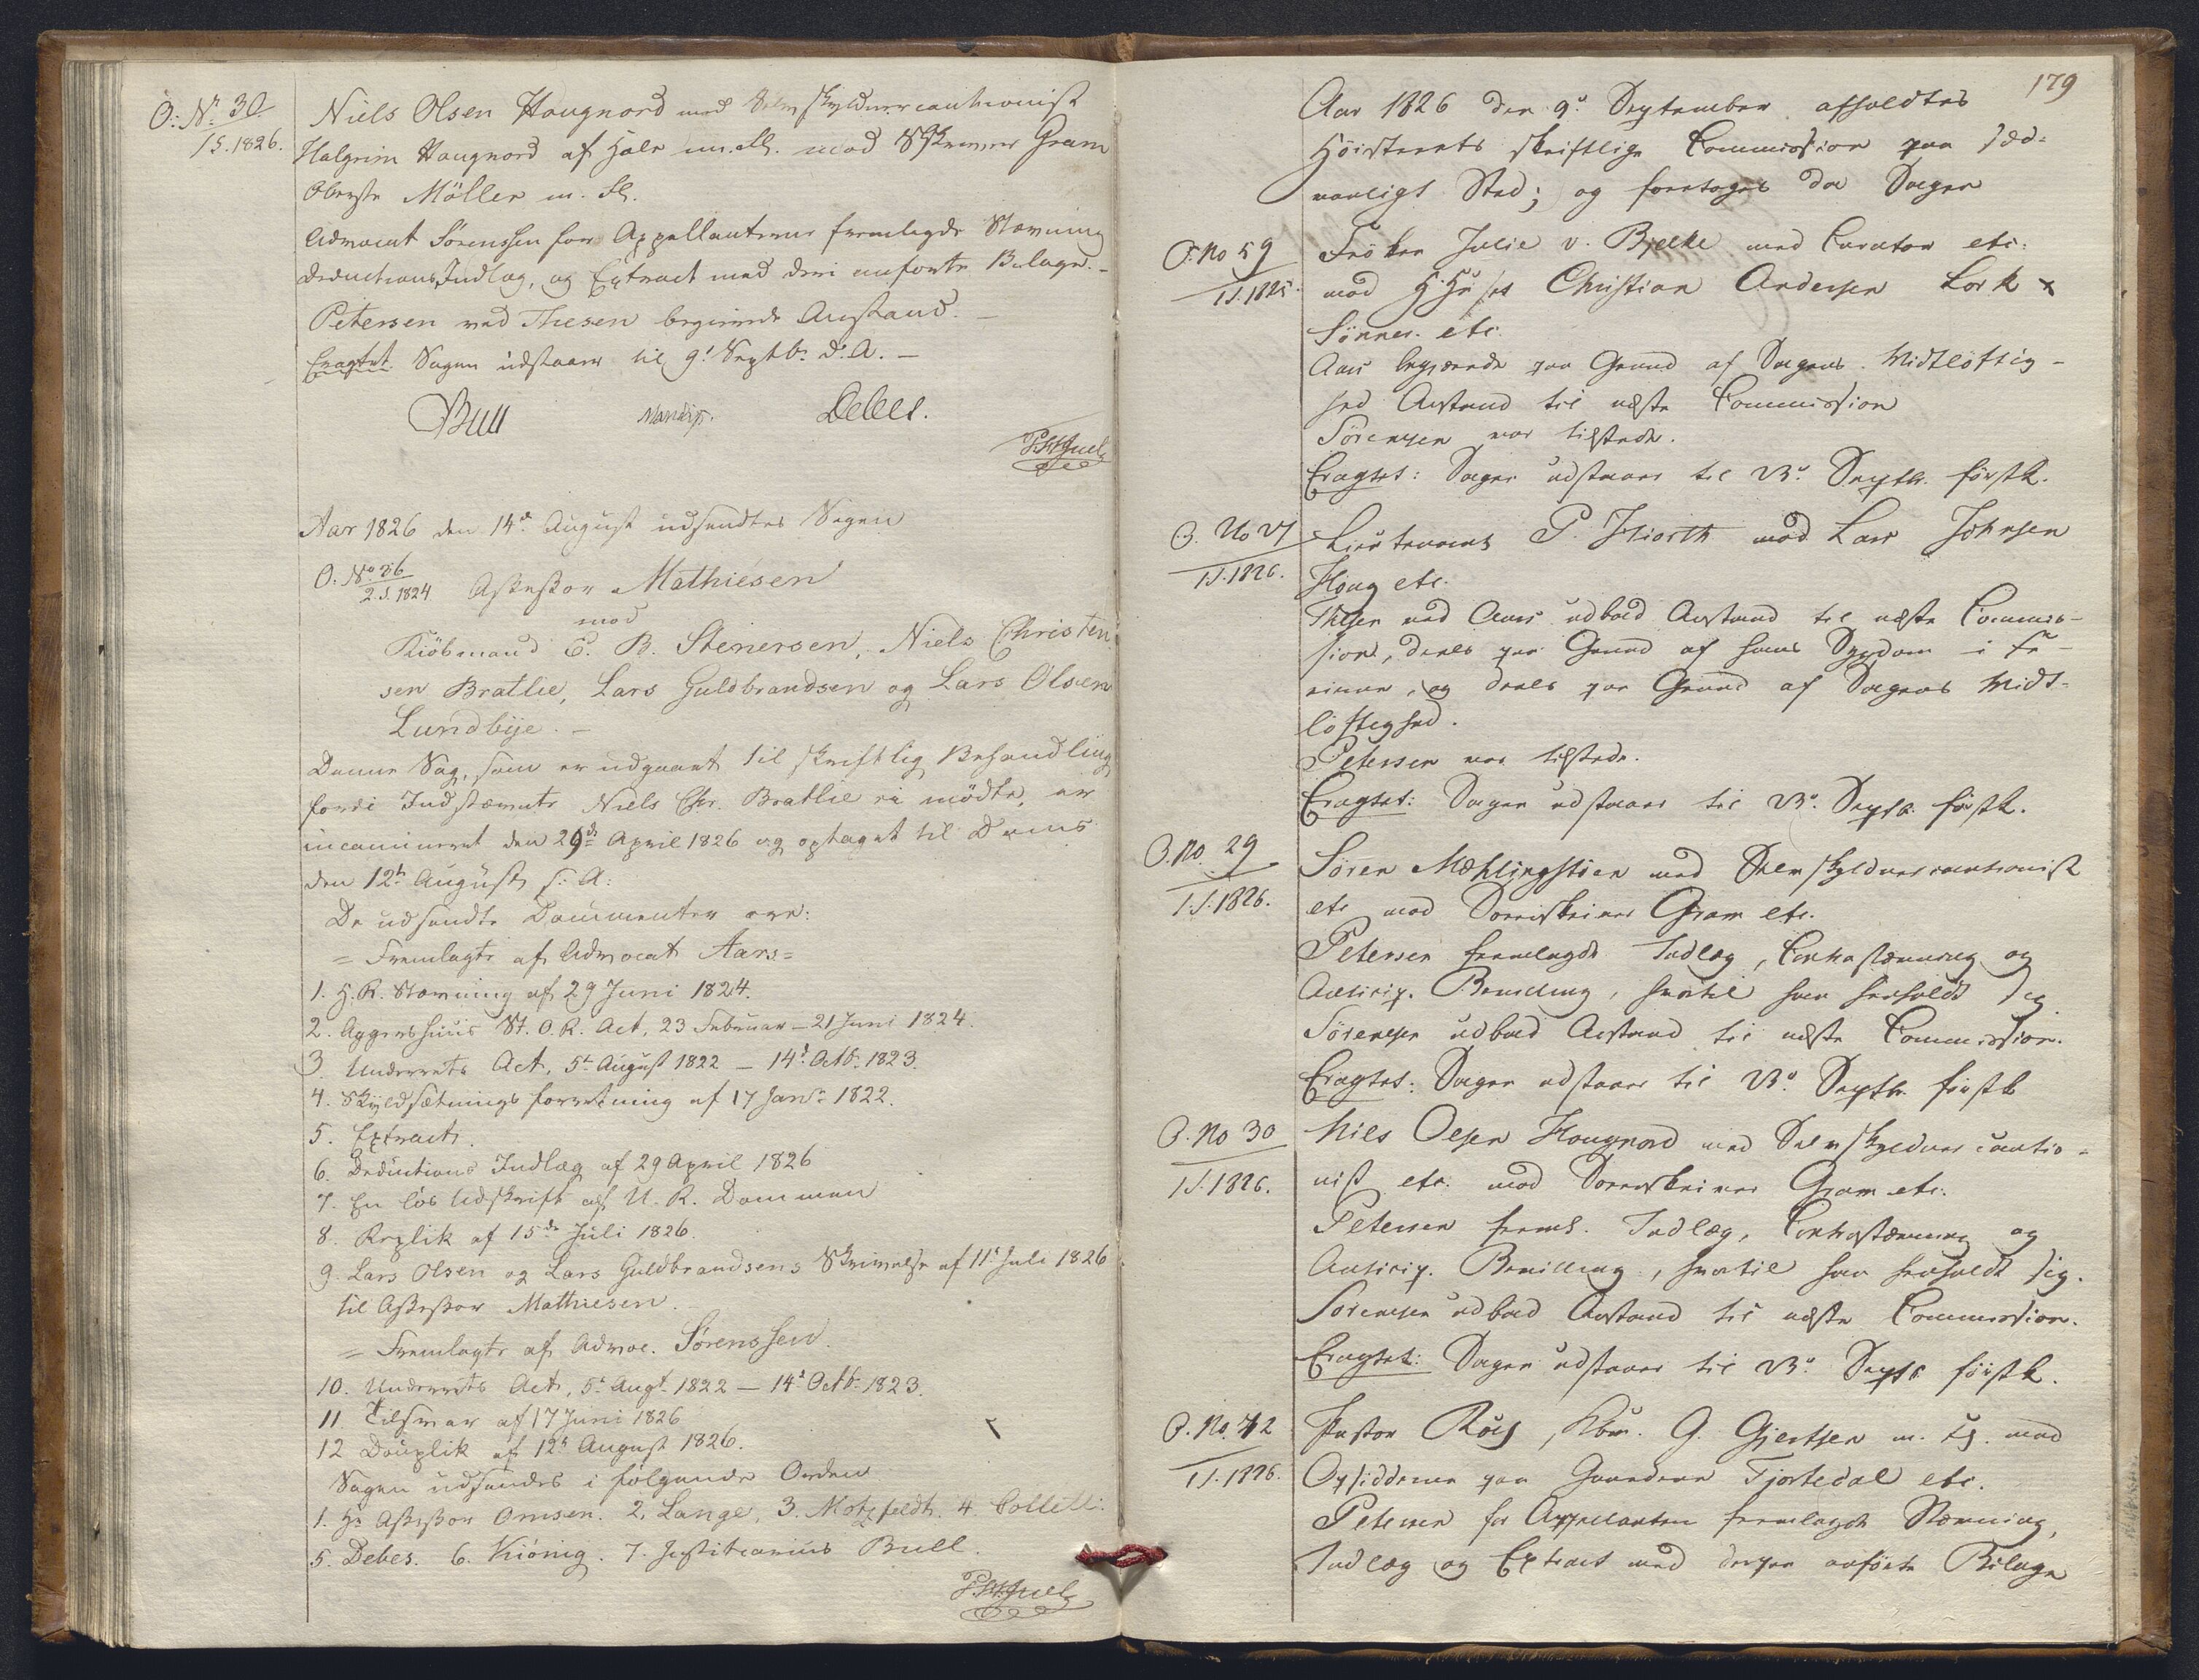 O. No. 30
1 S. 1826.
Niels Olsen Haugnord med Selvskyldnercautionist
Halgrim Haugnord af Hals m. fl. mod Gram
Oberste Möller m. fl.
Advocat Sørenssen for Appellanterne fremlagde Stævning
Deductions Indlæg, og Extract med deri anførte Bilage. –
Petersen ved Thesen begierede Anstand. –
Eragtet. Sagen udstaaer til 9d Septbr. d. A. –
Bull Debes.
P. H. Juel
Aar 1826 den 14de August udsendtes Sagen
O. No. 36
2. S. 1824
Assessor Mathiesen
mod
Kiöbmand C. B. Stenersen, Niels Christen
sen Bratlie, Lars Guldbrandsen og Lars Olsen
Lundbye. –
Denne Sag, som er udgaaet til skriftlig Behandling
fordi Indstævnte Niels Chr. Bratlie ei mödte, er
incamineret den 29de April 1826 og optaget til Doms
den 12te August s. A:
De udsendte Documenter ere:
= Fremlagte af Advocat Aars =
1. H. R. Stævning af 29 Juni 1824.
2. Aggershuus St. O. R. Act, 23 Februar – 21 Juni 1824.
3. Underrets Act, 5te August 1822 – 14d Octbr. 1823.
4. Skyldsætnings forretning af 17 Janr. 1822.
5. Extract.
6. Deductions Indlæg af 29 April 1826
7. En løs Udskrift af U. R. Dommen
8. Replik af 15de Juli 1826.
9. Lars Olsen og Lars Guldbrandsens Skrivelse af 11t Juli 1826
til Assessor Mathiesen.
= Fremlagte af Advoc. Sørenssen.
10. Underrets Act, 5t Augt. 1822 – 14d Octbr. 1823.
11 Tilsvar af 17 Juni 1826
12 Douplik af 12te August 1826.
Sagen udsendes i følgende Orden
1. Hr. Assessor Omsen. 2. Lange, 3. Motzfeldt. 4. Collett.
5. Debes. 6. Kiönig. 7. Justitiarius Bull.
P. H. Juel
179
Aar 1826 den 9d September afholdtes
Höiesterets skriftlige Commission paa sæd-
vanligt Sted; og foretoges da Sagen
O. No 59
1 S. 1825.
Fröken Julie v. Bjelke med Curator etc:
mod Christian Andersen Lork
Sönner. etc.
Aars begjærede paa Grund af Sagens Vidtløftig-
hed Anstand til næste Commission
Sörensen var tilstede.
Eragtet: Sagen udstaaer til 23d Septbr. förstk.
O. No 27
1 S. 1826.
Lieutenant P. Hiorth mod Lars Johnsen
Houg etc.
Thesen ved Aars udbad Anstand til næste Commis-
sion, deels paa Grund af hans Sygdom i Fe-
rierne, og deels paa Grund af Sagens Vidt-
löftighed.
Petersen var tilstede.
Eragtet: Sagen udstaaer til 23d Septbr. förstk.
O. No. 29
1 S. 1826.
Sören Mæhlingstöen med Selvskyldnercautionist
etc mod Sorenskriver Gram etc.
Petersen fremlagde Indlæg, Contrastævning og
Anticip. Bevilling, hvortil han henholdt sig
Sörensen udbad Anstand til næste Commission.
Eragtet: Sagen udstaaer til 23d Septbr. förstk
O. No 30
1 S. 1826.
Niels Olsen Hougnord med Selvskyldnercautio-
nist etc. mod Sorenskriver Gram etc.
Petersen freml. Indlæg, Contrastævning og
Anticip. Bevilling, hvortil han henholdt sig.
Sörensen udbad Anstand til næste Commission.
Eragtet: Sagen udstaaer til 23d Septbr förstk.
O. No. 42
1 S. 1826.
Pastor G. Gjertsen m. fl. mod
Opsidderne paa Gaardene Tjostedal etc.
Petersen for Appellanten fremlagde Stævning,
Indlæg og Extract med derpaa anförte Bilage